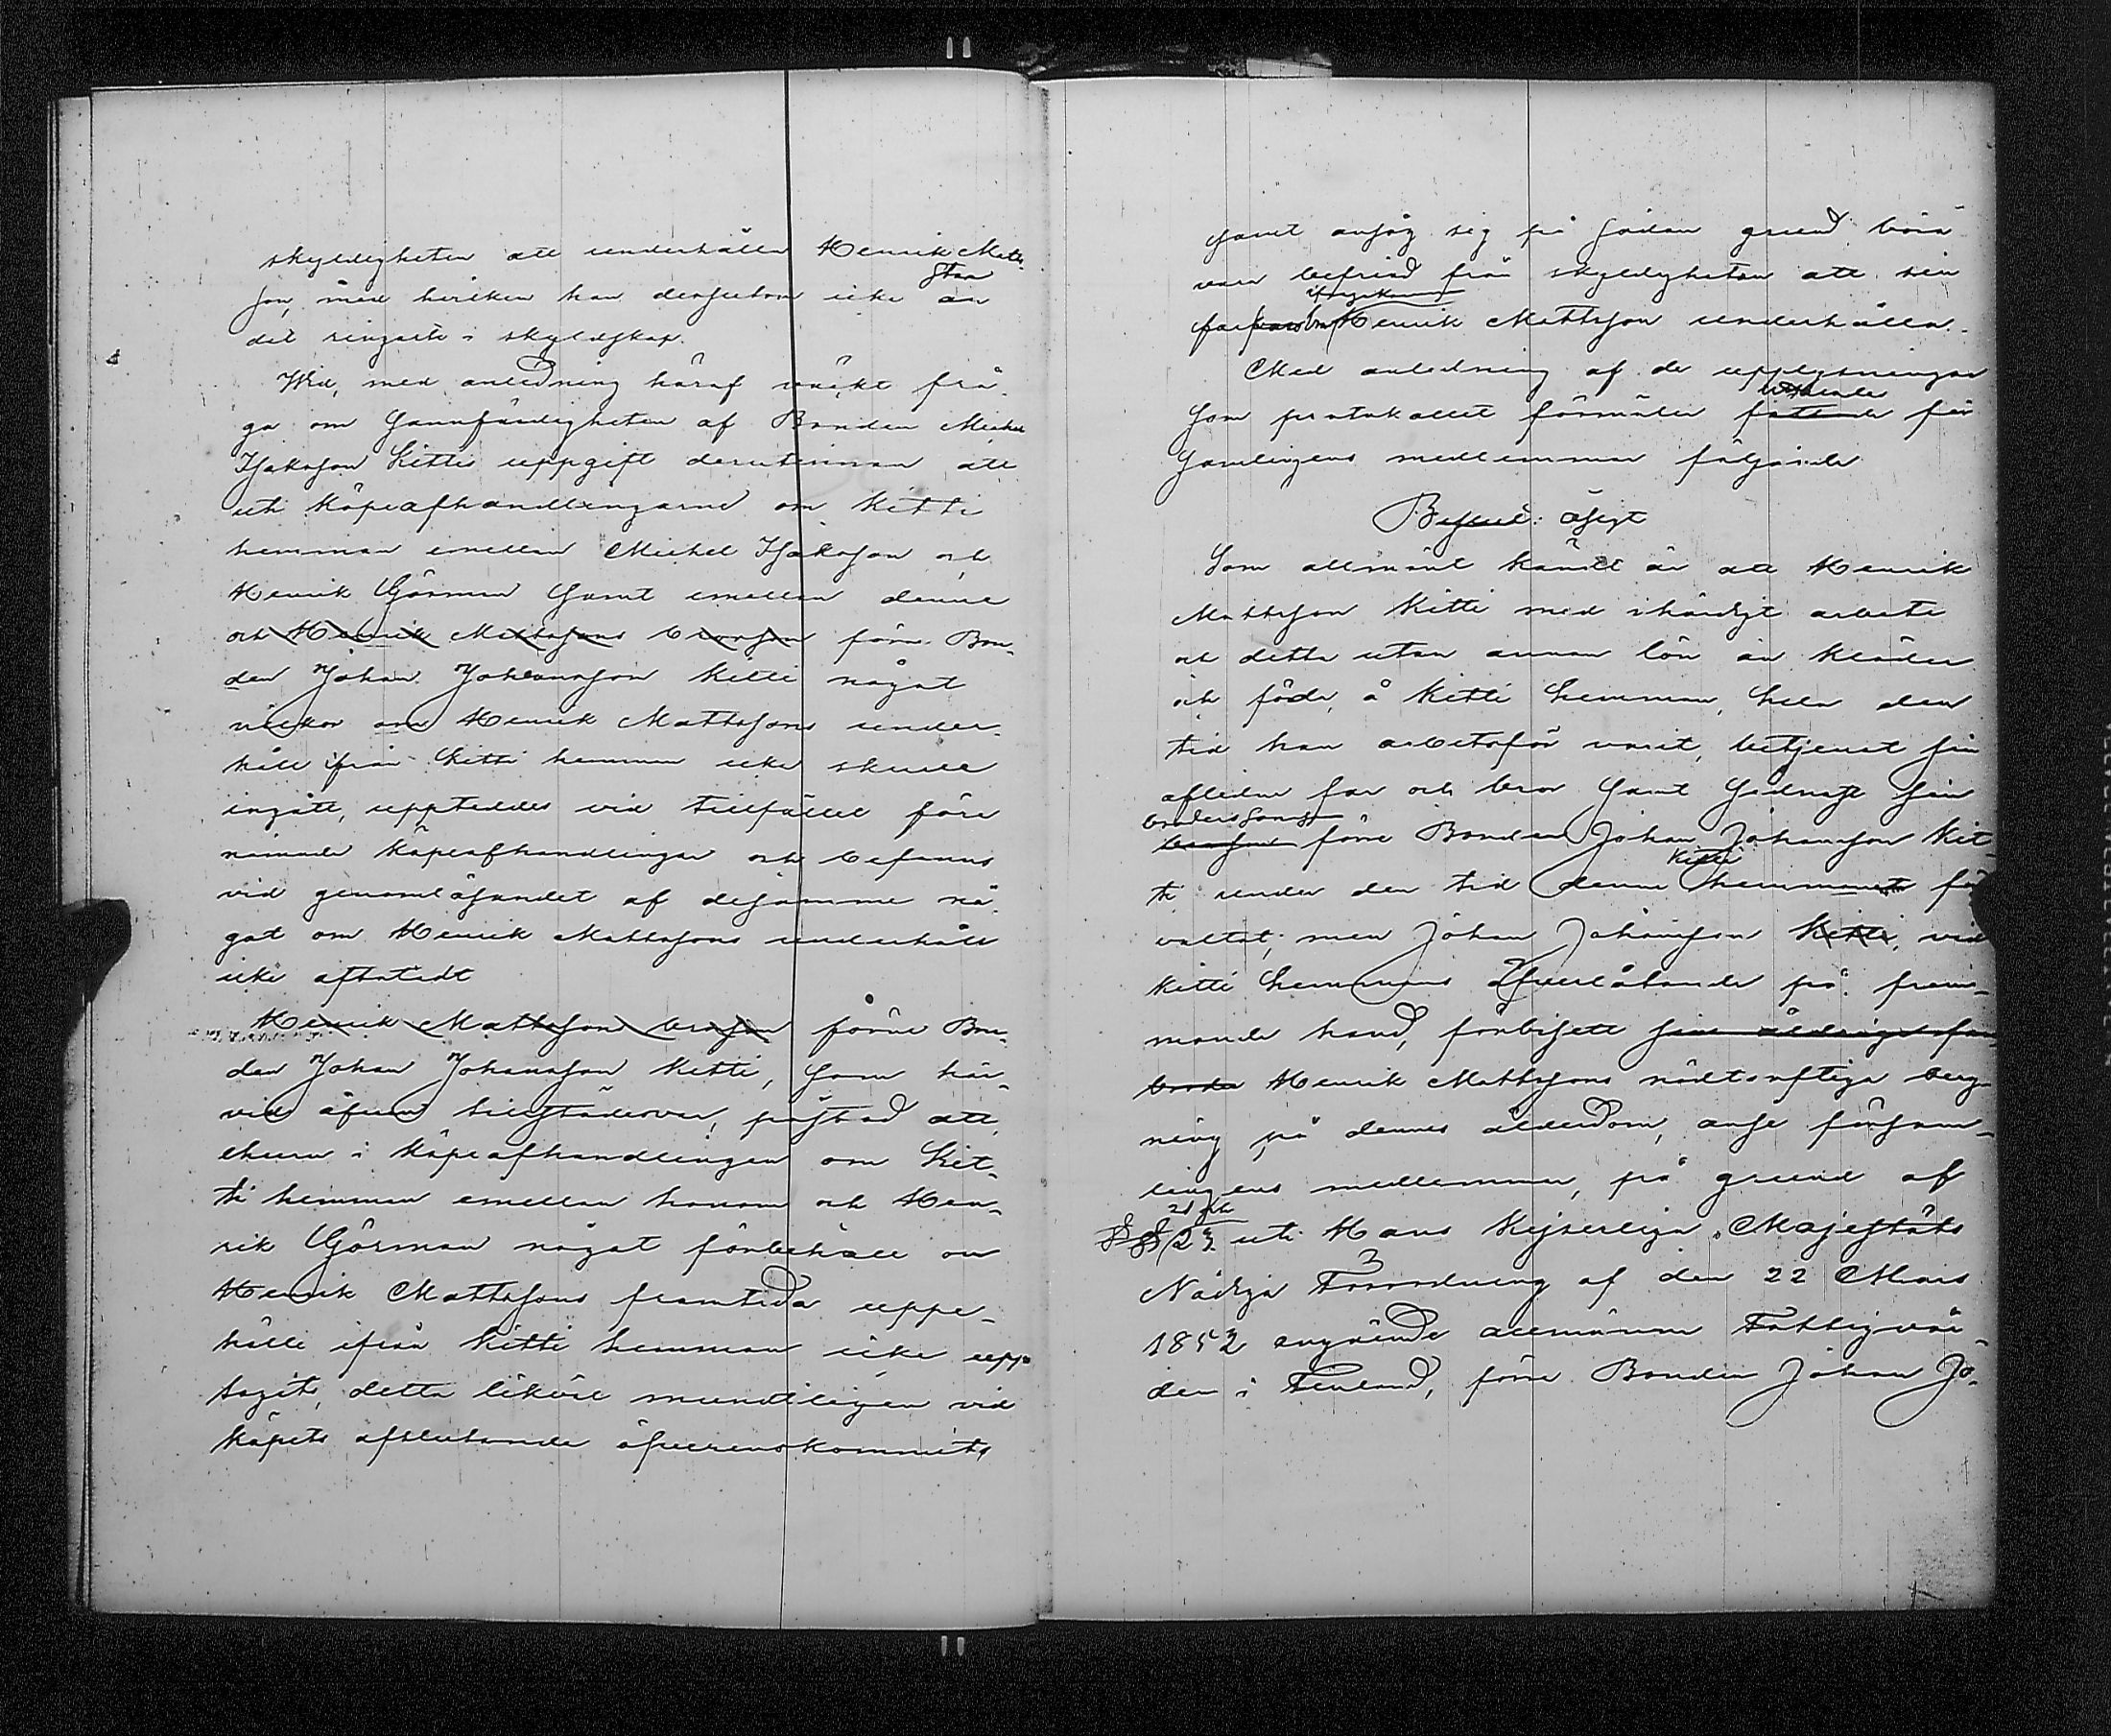 skyldigheten att underhålla Henrik Matts-
son, med hvilken han dessutom icke står
det ringaste i skyldskap.
Wid, med anledning häraf väckt frå-
ga om sannfärdigheten af Bonden Michel
Isaksson Kittis uppgift derutinnan att
uti köpeafhandlingarne om Kitti
hemman emellan Michel Isaksson och
Henrik Görman samt emellan denne
och Henrik Mattssons brorson förre Bon-
den Johan Johansson Kitti något
vilkor om Henrik Mattssons under-
håll ifrån Kitti hemman icke skulle
ingått, uppteddes vid tillfället före
nämnde köpeafhandlingar och befanns
vid genomläsandet af desamme nå-
got om Henrik Mattssons underhåll
icke aftaladt
Henrik Mattsson brorson förre Bon-
den Johan Johansson Kitti, som här-
vid äfven tillstädesvar, påstod att,
ehuru i köpeafhandlingen om Kit-
ti hemman emellan honom och Hen-
rik Görman något förbehåll om
Henrik Mattssons framtida uppe-
hälle ifrån Kitti hemman icke upp-
tagits, detta likväl mundtligen vid
köpets afslutande öfverenskommits,
samt ansåg sig på sådan grund böra
vara befriad från skyldigheten att sin
farbror Henrik Mattsson underhålla.
Med anledning af de upplysningar
Som protokollet förmäler för
samlingens medlemmar följande
Beslut: åsigt
Som allmänt kändt är att Henrik
Mattsson Kitti med ihärdigt arbete
och detta utan annan lön än kläder
och föda, å Kitti hemman, hela den
tid han arbetsför varit, betjenat sin
aflidne far och bror samt sednast sin
brorsons
brorson förre Bonden Johan Johansson Kit-
Kitti
ti under den tid denne hemmanet för
valtat; men Johan Johansson Kitti, vid
Kitti hemmans öfverlåtande på främ-
mande hand, förbisett sin åldrige far-
broder Henrik Mattssons nödtorftiga berg-
ning på dennes ålderdom, anse försam-
lingens medlemmar, på grund af
§§ 23 uti Hans Kejserliga Majestäts
Nådiga Förordning af den 22 Mars
1852 angående allmänna Fattigvår-
den i Finland, förre Bonden Johan Jo-